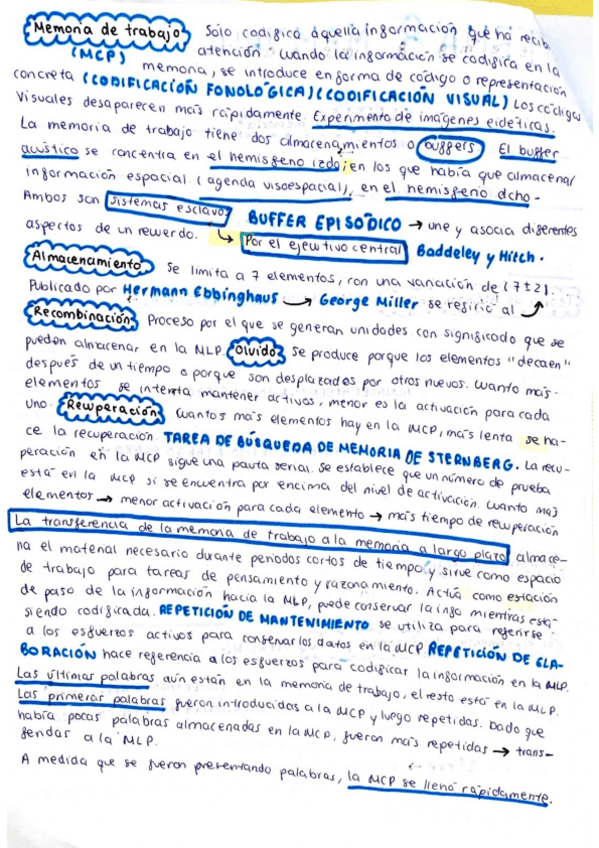 Memoria de trabajo Solo codifica aquella información que ha recib
(MCP) atención. Cuando la información se codifica en la
memoria, se introduce en forma de código o representación
concreta (CODIFICACIÓN FONOLÓGICA)(CODIFICACIÓN VISUAL) Los códigos
visuales desaparecen más rápidamente. Experimento de imágenes eidéticas.
La memoria de trabajo tiene dos almacenamientos o buffers El buffer
acústico se concentra en el hemisferio izdo; en los que había que almacenar
información espacial (agenda visoespacial), en el hemisferio dcho.
Ambos son sistemas esclavos BUFFER EPISÓDICO → une y asocia diferentes
aspectos de un recuerdo. ↳ Por el ejecutivo central Baddeley y Hitch.
Almacenamiento Se limita a 7 elementos, con una variación de (7±2).
Publicado por Hermann Ebbinghaus → George Miller se refirió al
Recombinación Proceso por el que se generan unidades con significado que se
pueden almacenar en la MLP. Olvido Se produce porque los elementos "decaen"
después de un tiempo o porque son desplazados por otros nuevos. Cuanto más
elementos se intenta mantener activos, menor es la activación para cada
uno. Recuperación Cuantos más elementos hay en la MCP, más lenta se ha-
ce la recuperación. TAREA DE BÚSQUEDA DE MEMORIA DE STERNBERG. La recu-
peración en la MCP sigue una pauta serial. Se establece que un número de prueba
está en la MCP si se encuentra por encima del nivel de activación. Cuanto más
elementos → menor activación para cada elemento → más tiempo de recuperación
La transferencia de la memoria de trabajo a la memoria a largo plazo almace-
na el material necesario durante periodos cortos de tiempo y sirve como espacio
de trabajo para tareas de pensamiento y razonamiento. Actúa como estación
de paso de la información hacia la MLP, puede conservar la info mientras está
siendo codificada. REPETICIÓN DE MANTENIMIENTO se utiliza para referirse
a los esfuerzos activos para conservar los datos en la MCP. REPETICIÓN DE ELA-
BORACIÓN hace referencia a los esfuerzos para codificar la información en la MLP.
Las últimas palabras aún están en la memoria de trabajo, el resto está en la MLP.
Las primeras palabras fueron introducidas a la MCP y luego repetidas. Dado que
había pocas palabras almacenadas en la MCP, fueron más repetidas → trans-
feridas a la MLP.
A medida que se fueron presentando palabras, la MCP se llenó rápidamente.